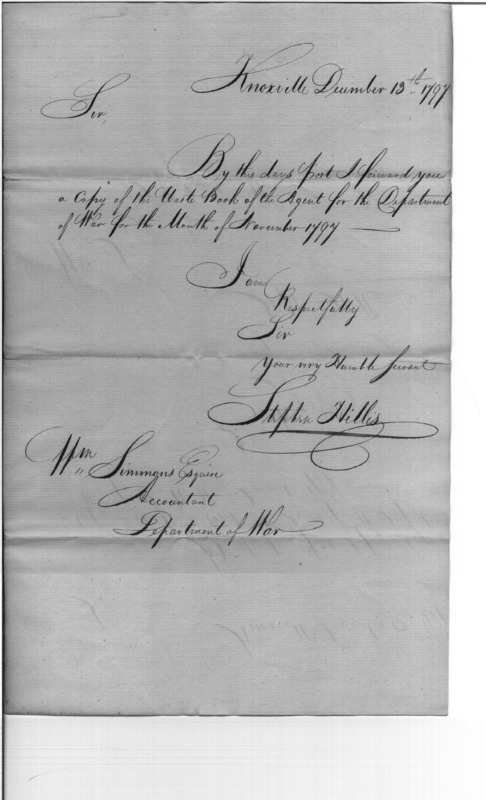 Knoxville December 13th 1797
Sir,
By this days post I forward you
a Copy of the Waste Book of the Agent for the Department
of War for the Month of November 1797 —
I am
Respectfully
Sir
your very Humble Servant
Stephen Hillis
Wm Simmons Esquire
Accountant
Department of War